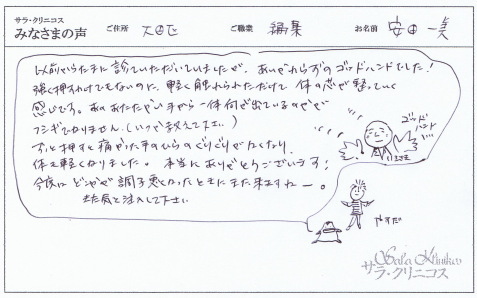 サラ・クリニコス
みなさまの声
ご住所 大田区
ご職業 編集
お名前 安田 一美
以前からたまに診ていただいていましたが、あいかわらずのゴッドハンドでした!
強く押すわけでもないのに、軽く触れられただけで 体の芯が整っていく
感じです。あのあたたかい手から一体何が出ているのやら
フシギでなりません。(いつか教えて下さい)
ずっと押すと痛かった手のひらのぐりぐりがなくなり、
体も軽くなりました。 本当にありがとうございます!
今度は どこかが 調子悪くなったときにまた来ますねー。
また気を注入して下さい
ゴッド
ハンド
やすだ
Sala Klinikos
サラ・クリニコス